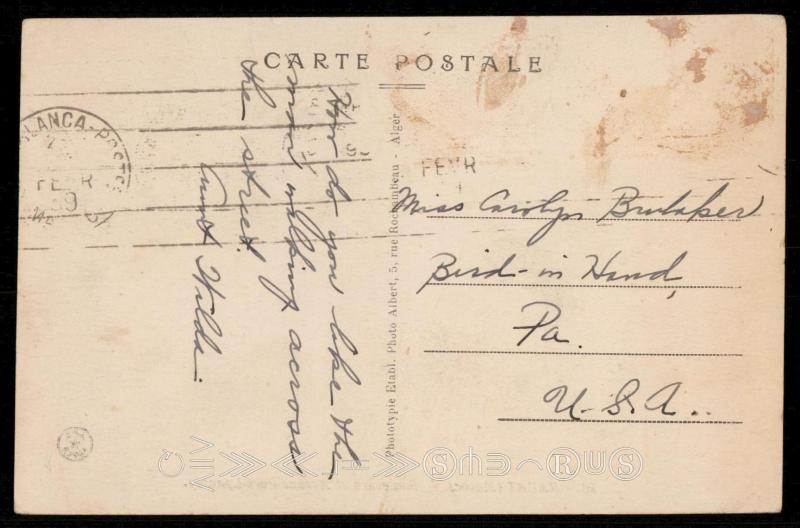 CARTE POSTALE
How do you like the
man walking across
the street.
Aunt Hilda.
Phototypie Etabl. Photo Albert, 5, rue Rochambeau - Alger
LANCA-POSTE
FEVR
FEVR
Miss Carolyn Brubaker
Bird-in Hand,
Pa.
U.S.A..